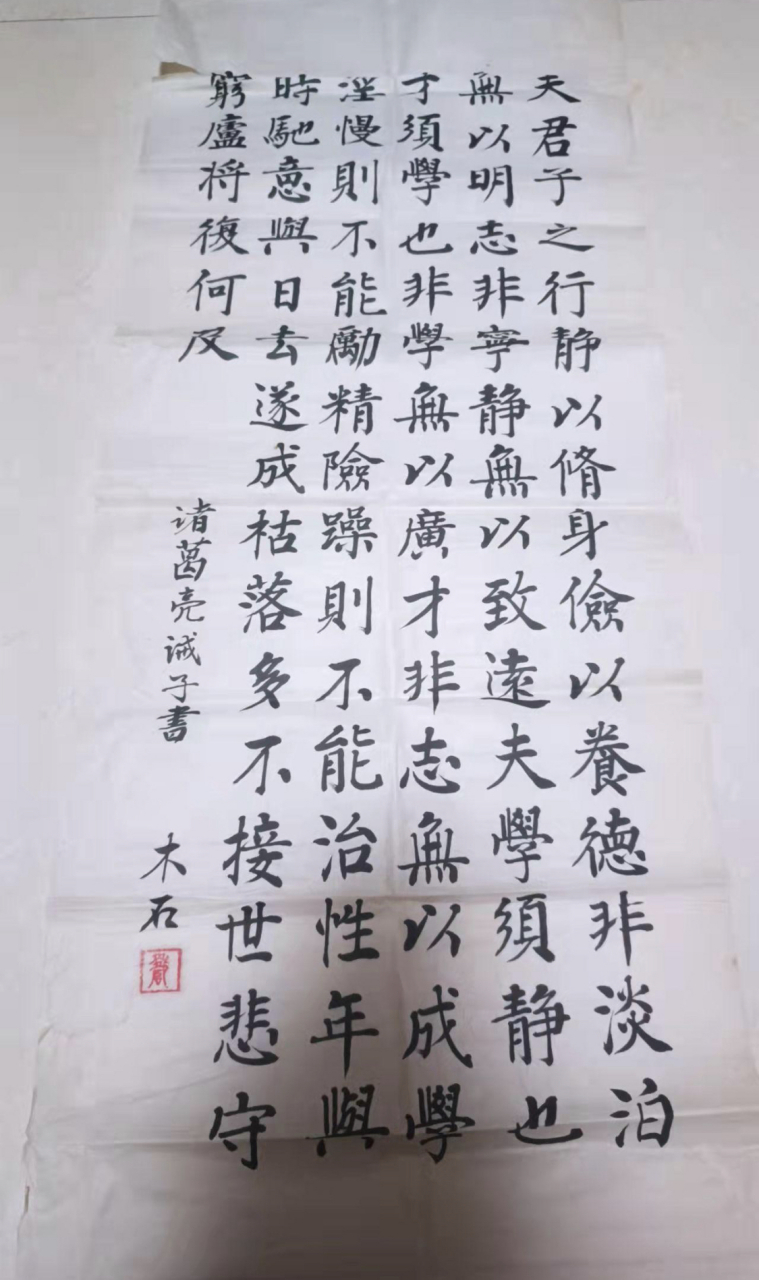 天君子之行静以脩身儉以養德非淡泊
無以明志非寧静無以致遠夫學須静也
才須學也非學無以廣才非志無以成學
淫慢則不能勵精險躁則不能治性年與
時馳意與日去遂成枯落多不接世悲守
窮廬将復何及
诸葛亮诫子書
木石